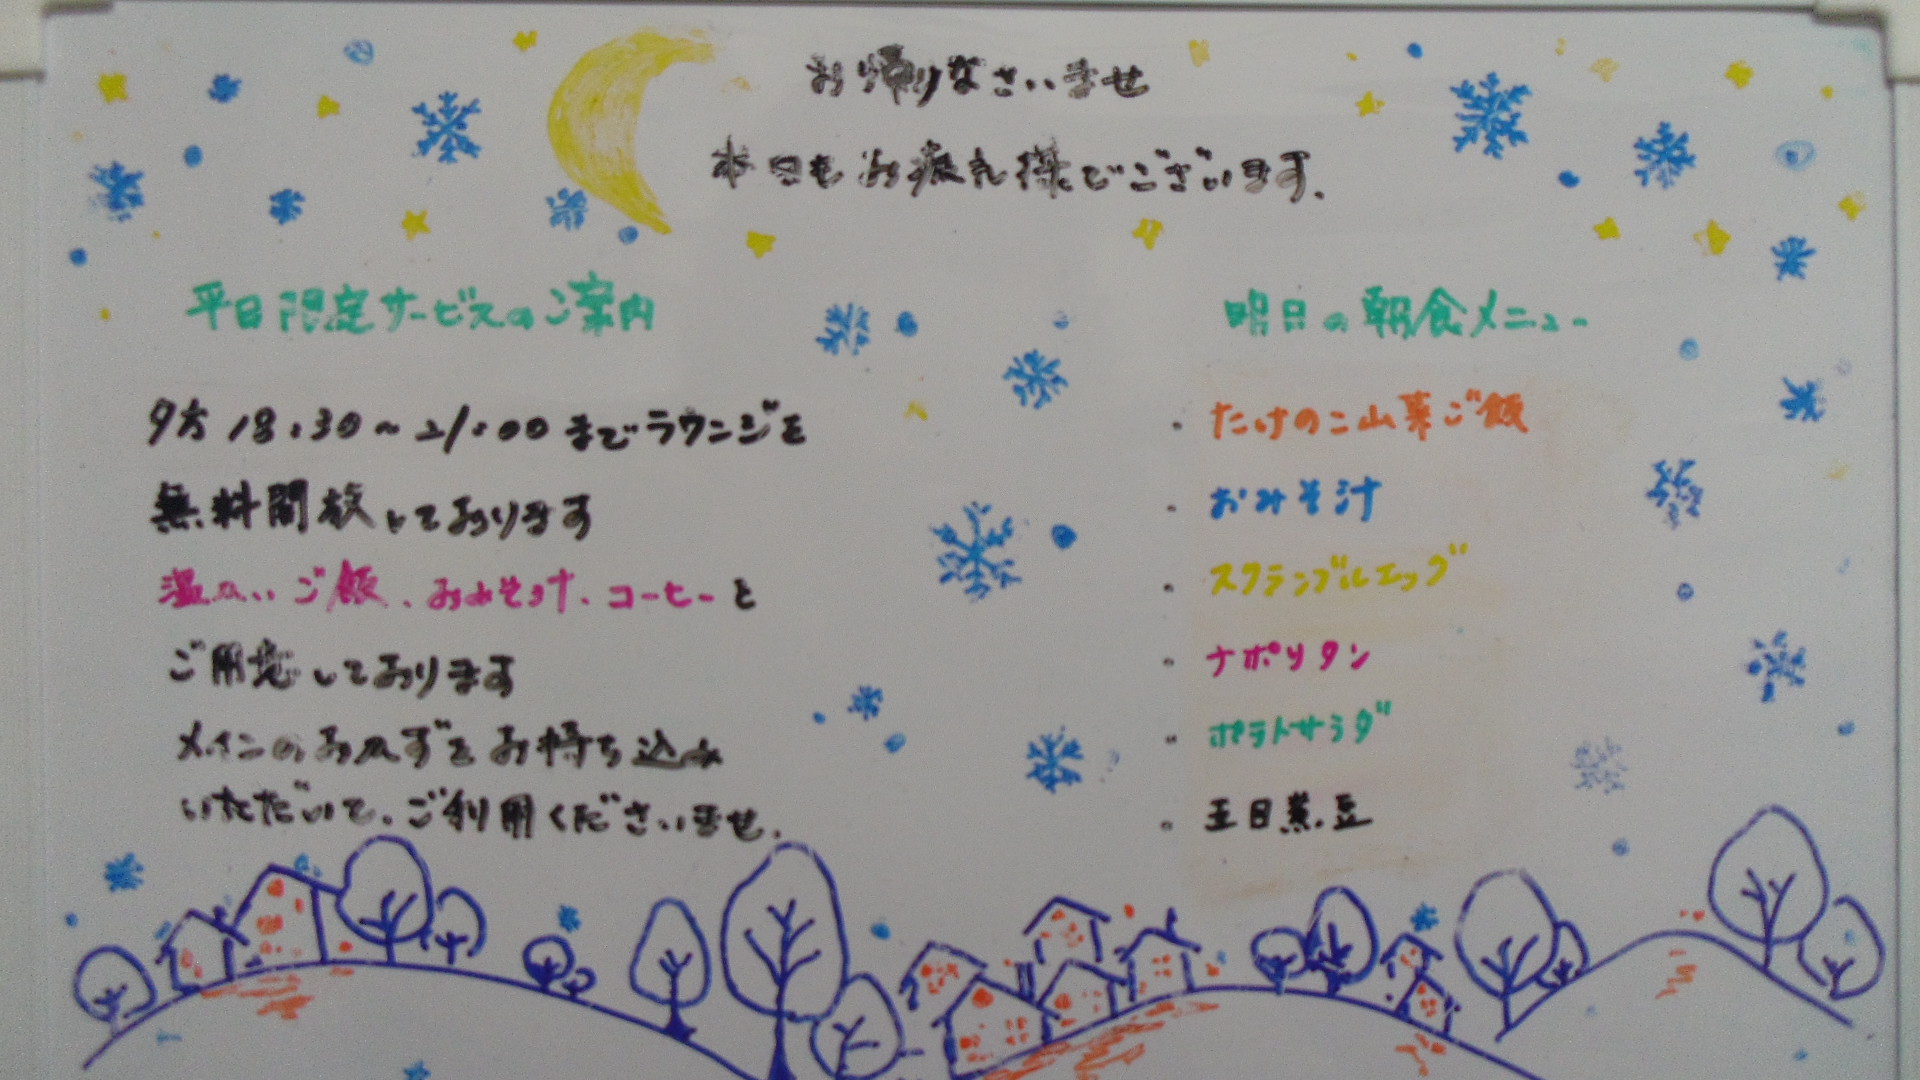 お帰りなさいませ
本日もお疲れ様でございます.
平日限定サービスのご案内
夕方 18:30～21:00までラウンジを
無料開放しております
温かいご飯、おみそ汁、コーヒーを
ご用意しております
メインのおかずをお持ち込み
いただいて、ご利用くださいませ.
明日の朝食メニュー
・たけのこ山菜ご飯
・おみそ汁
・スクランブルエッグ
・ナポリタン
・ポテトサラダ
・五目煮豆